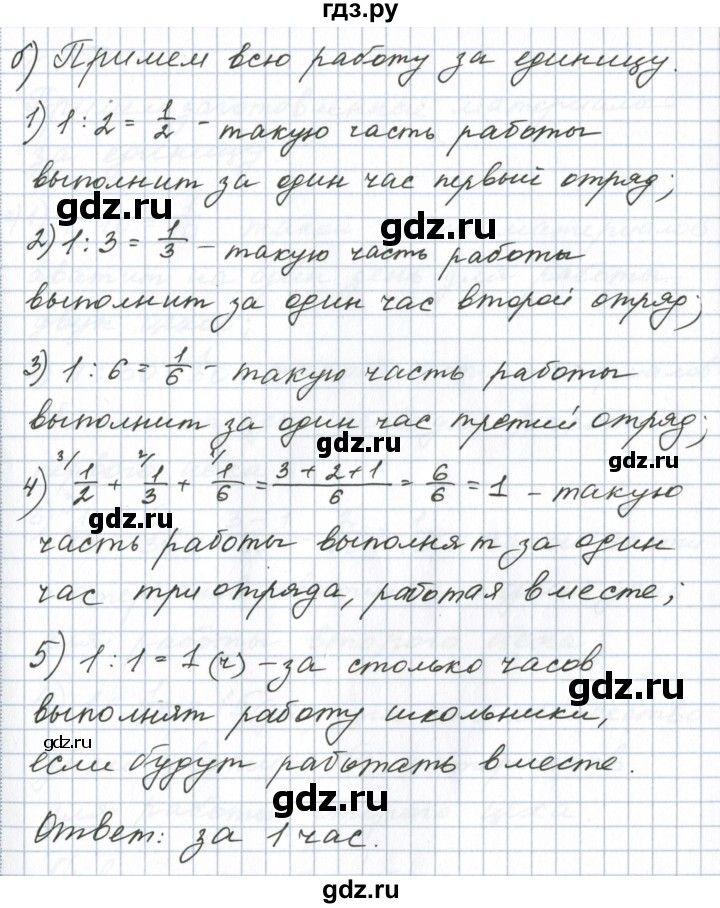 гдз.ру
б) Примем всю работу за единицу.
1) 1 : 2 = 1/2 - такую часть работы
выполнит за один час первый отряд;
gdz.ru gdz.ru
2) 1 : 3 = 1/3 - такую часть работы
выполнит за один час второй отряд;
3) 1 : 6 = 1/6 - такую часть работы
выполнит за один час третий отряд;
gdz.ru gdz.ru
4) 3/ 1/2 + 2/ 1/3 + 1/ 1/6 = (3 + 2 + 1)/6 = 6/6 = 1 - такую
gdz.ru
часть работы выполнят за один
час три отряда, работая вместе;
5) 1 : 1 = 1 (ч) - за столько часов
gdz.ru
выполнят работу школьники,
gdz.ru
если будут работать вместе.
gdz.ru
Ответ: за 1 час.
gdz.ru